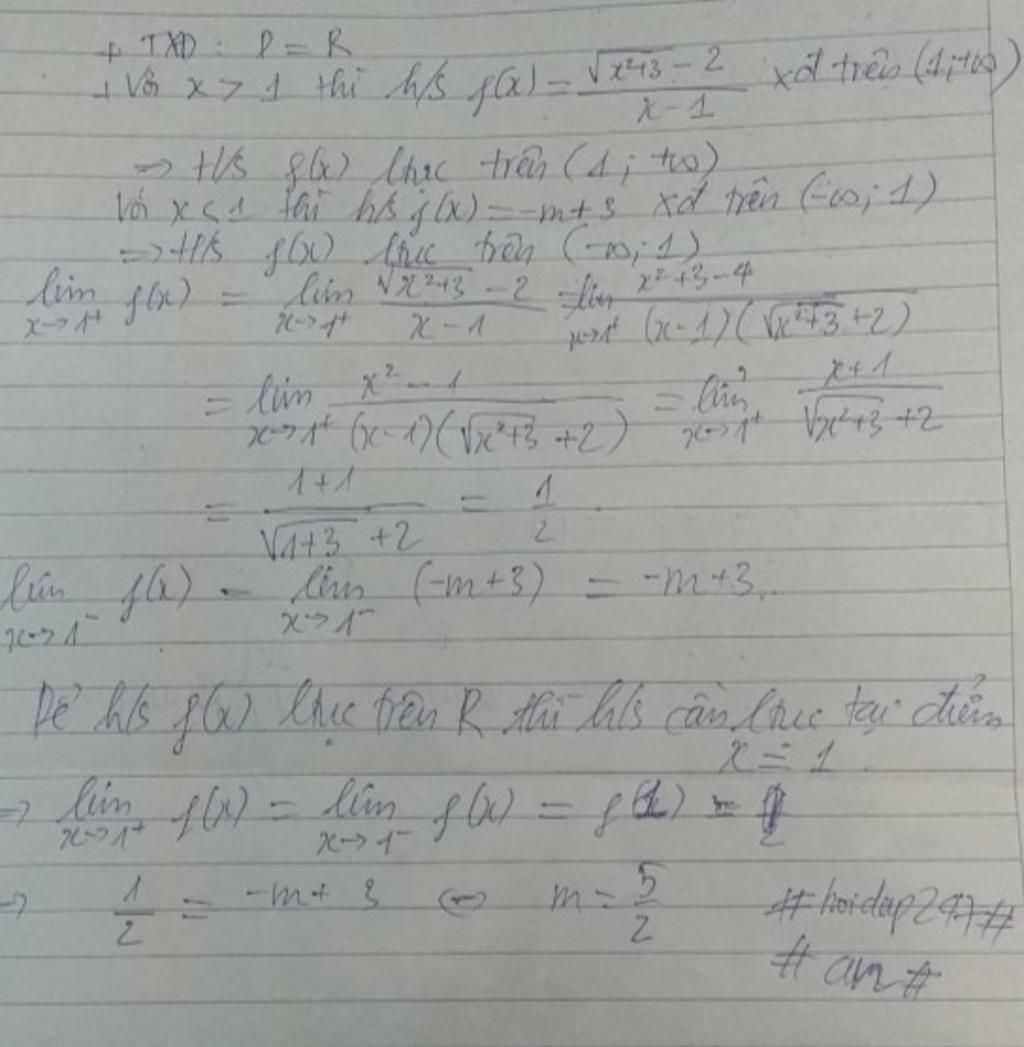 + TXĐ : D = R
+ Với x > 1 thì h/s f(x) = (√(x²+3) - 2)/(x - 1) xđ trên (1; +∞)
=> H/s f(x) ltục trên (1; +∞)
Với x < 1 thì h/s f(x) = -m + 3 xđ trên (-∞; 1)
=> H/s f(x) ltục trên (-∞; 1)
lim x→1⁺ f(x) = lim x→1⁺ (√(x²+3) - 2)/(x - 1) = lim x→1⁺ (x² + 3 - 4)/((x-1)(√(x²+3) + 2))
= lim x→1⁺ (x² - 1)/((x-1)(√(x²+3) + 2)) = lim x→1⁺ (x+1)/(√(x²+3) + 2)
= (1+1)/(√(1+3) + 2) = 1/2
lim x→1⁻ f(x) = lim x→1⁻ (-m+3) = -m+3
Để h/s f(x) ltục trên R thì h/s cần ltục tại điểm
x = 1
=> lim x→1⁺ f(x) = lim x→1⁻ f(x) = f(1)
=> 1/2 = -m + 3 <=> m = 5/2 #hoidap247#
#an#